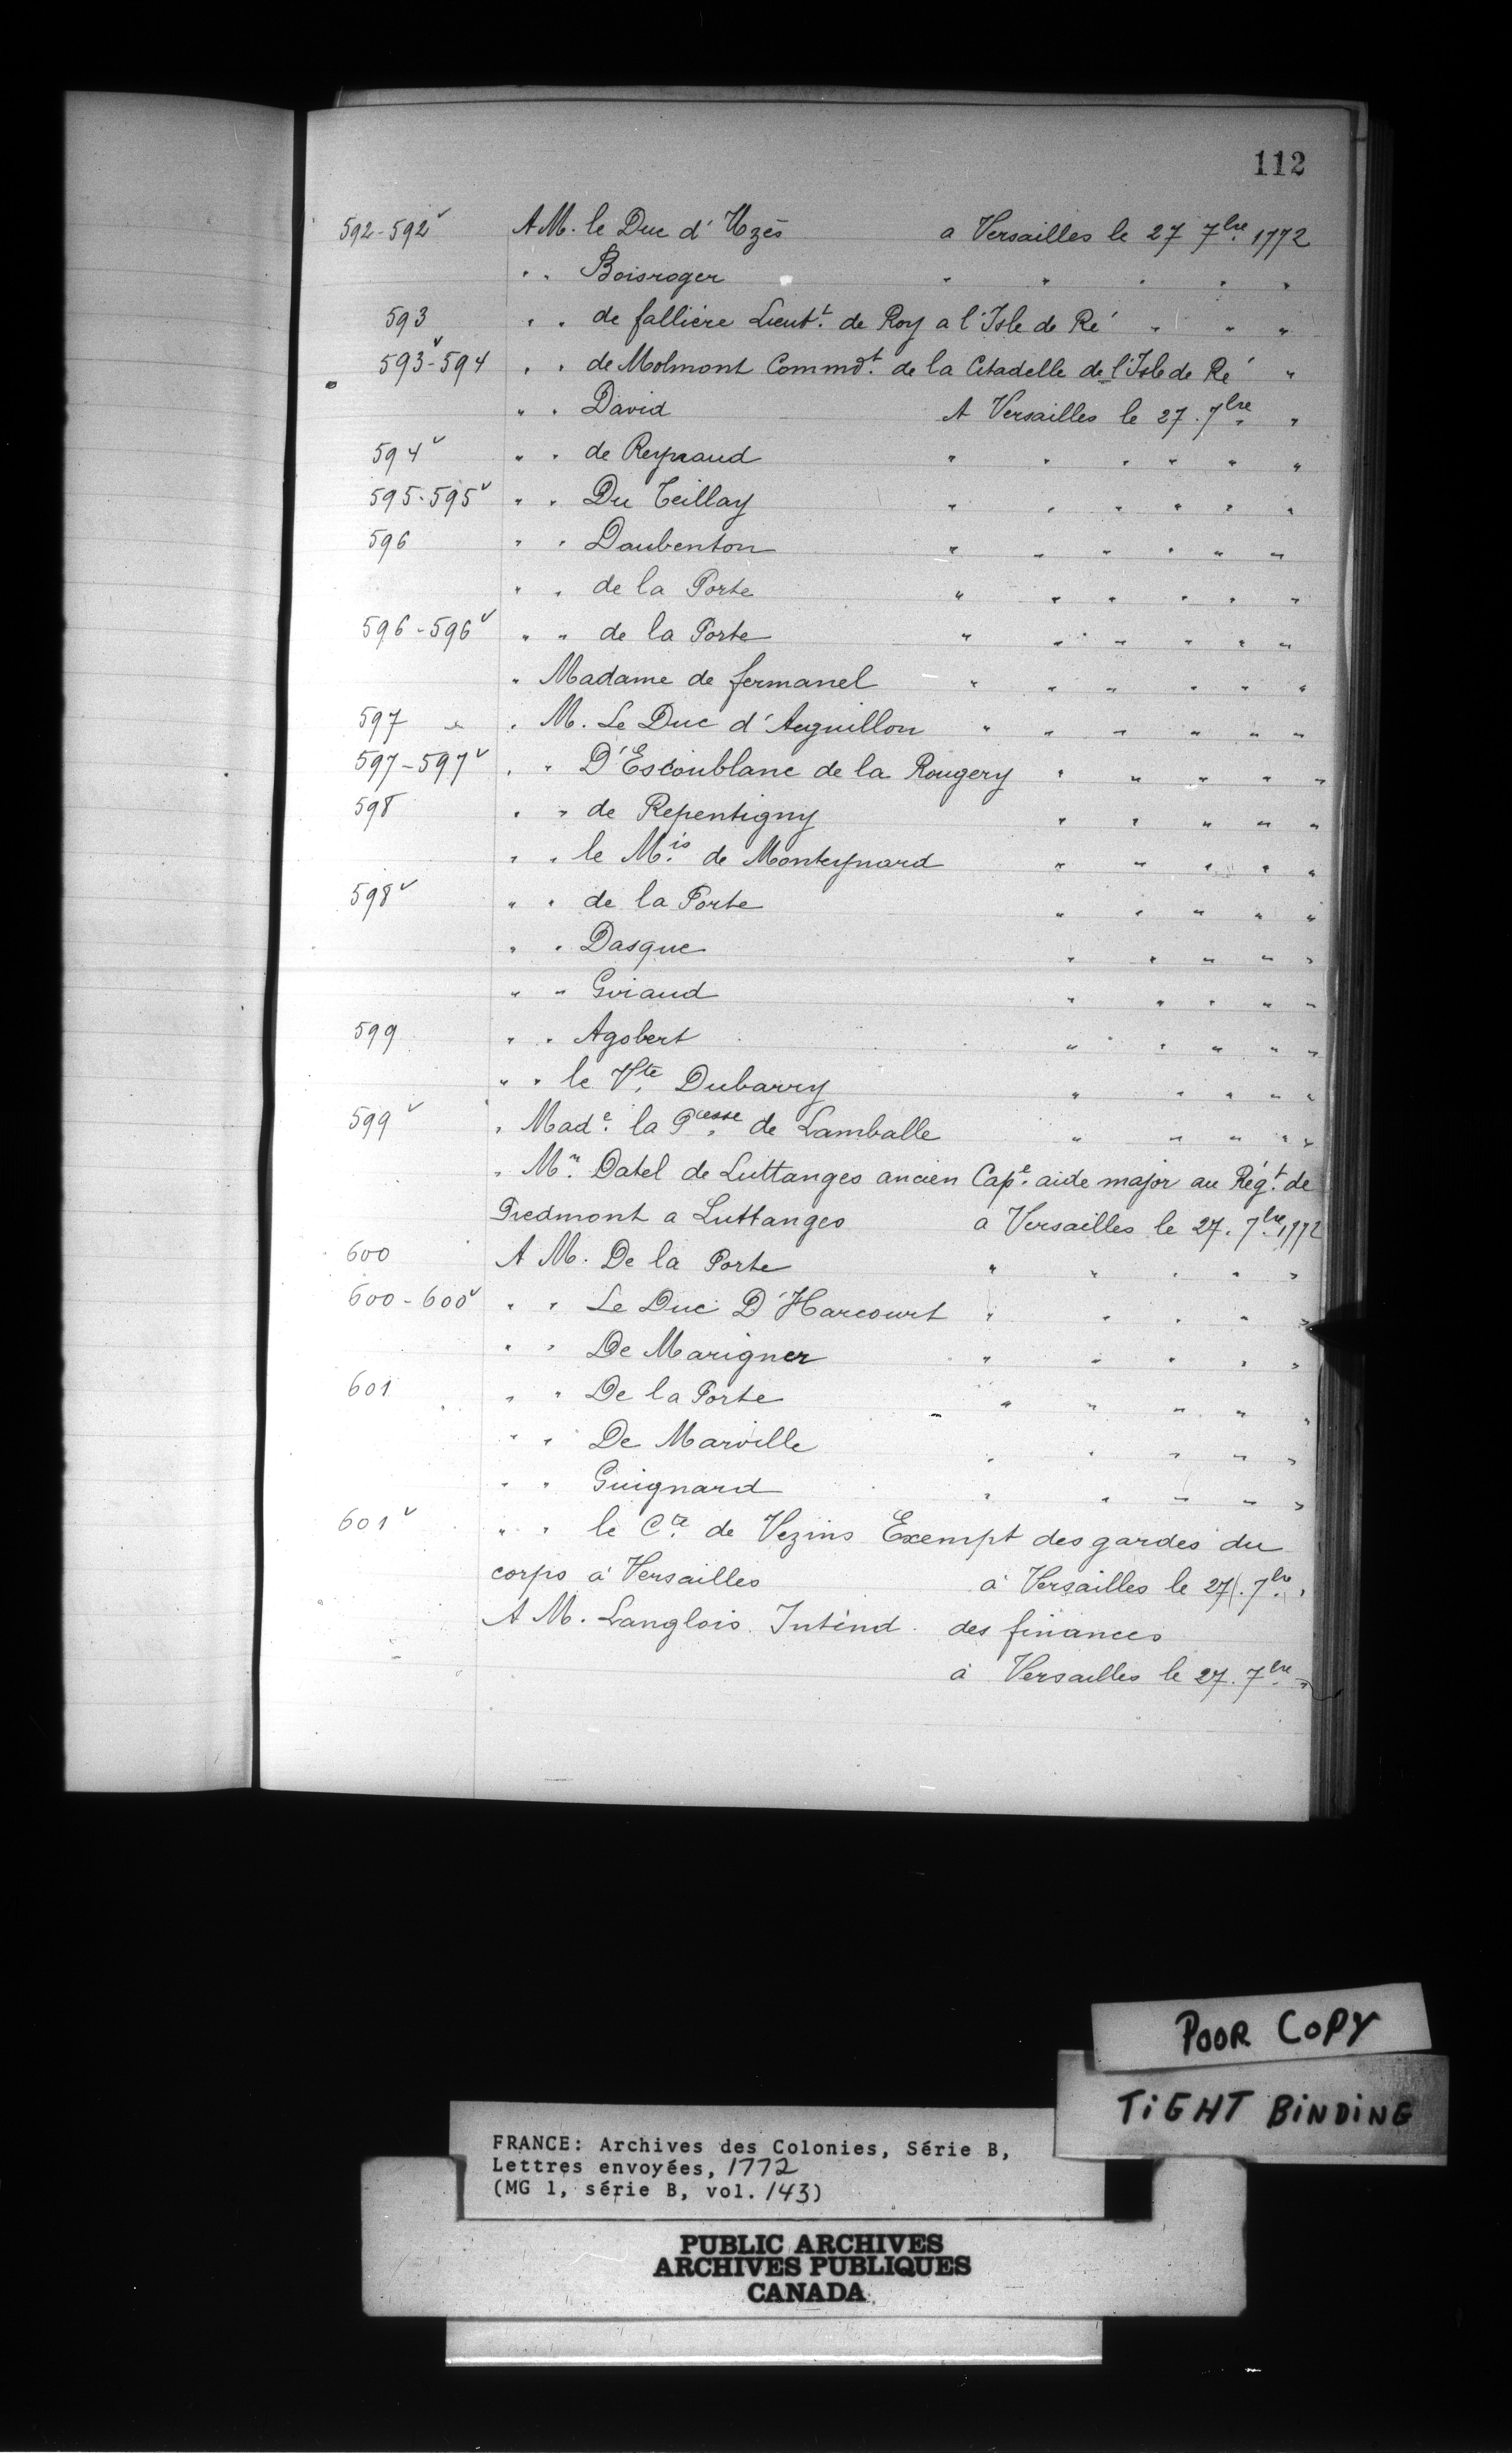 112
592-592v A M. le Duc d'Uzès a Versailles le 27 7bre 1772
" " Boisroger " " " " "
593 " " de fallière Lieutt. de Roy a l'Isle de Ré " " "
593v-594 " " de Molmont Commdt. de la Citadelle de l'Isle de Ré "
" " David A Versailles le 27. 7bre " "
594v " " de Reynaud " " " " " "
595-595v " " Du Teillay " " " " " "
596 " " Daubenton " " " " " "
" " de la Porte " " " " " "
596-596v " " de la Porte " " " " " "
" Madame de fermanel " " " " " "
597 " M. Le Duc d'Aiguillon " " " " " "
597-597v " " D'Escoublanc de la Rougery " " " " "
598 " " de Repentigny " " " " "
" " le Mis. de Monteynard " " " " "
598v " " de la Porte " " " " "
" " Dasque " " " " "
" " Giraud " " " " "
599 " " Agobert " " " " "
" " le Vte. Dubarry " " " " "
599v " Made. la Pcesse. de Lamballe " " " " "
" Mr. Datel de Luttanges ancien Cape. aide major au Régt. de
Piedmont a Luttanges a Versailles le 27. 7bre. 1772
600 A M. De la Porte " " " " "
600-600v " " Le Duc D'Harcourt " " " " "
" " De Marigner " " " " "
601 " " De la Porte " " " " "
" " De Marville " " " " "
" " Guignard " " " " "
601v " " le Cte. de Vezins Exempt des gardes du
corps à Versailles à Versailles le 27. 7bre. "
A M. Langlois. Intend. des finances
à Versailles le 27. 7bre. "
POOR COPY
TiGHT BiNDiNG
FRANCE: Archives des Colonies, Série B,
Lettres envoyées, 1772
(MG 1, série B, vol. 143)
PUBLIC ARCHIVES
ARCHIVES PUBLIQUES
CANADA